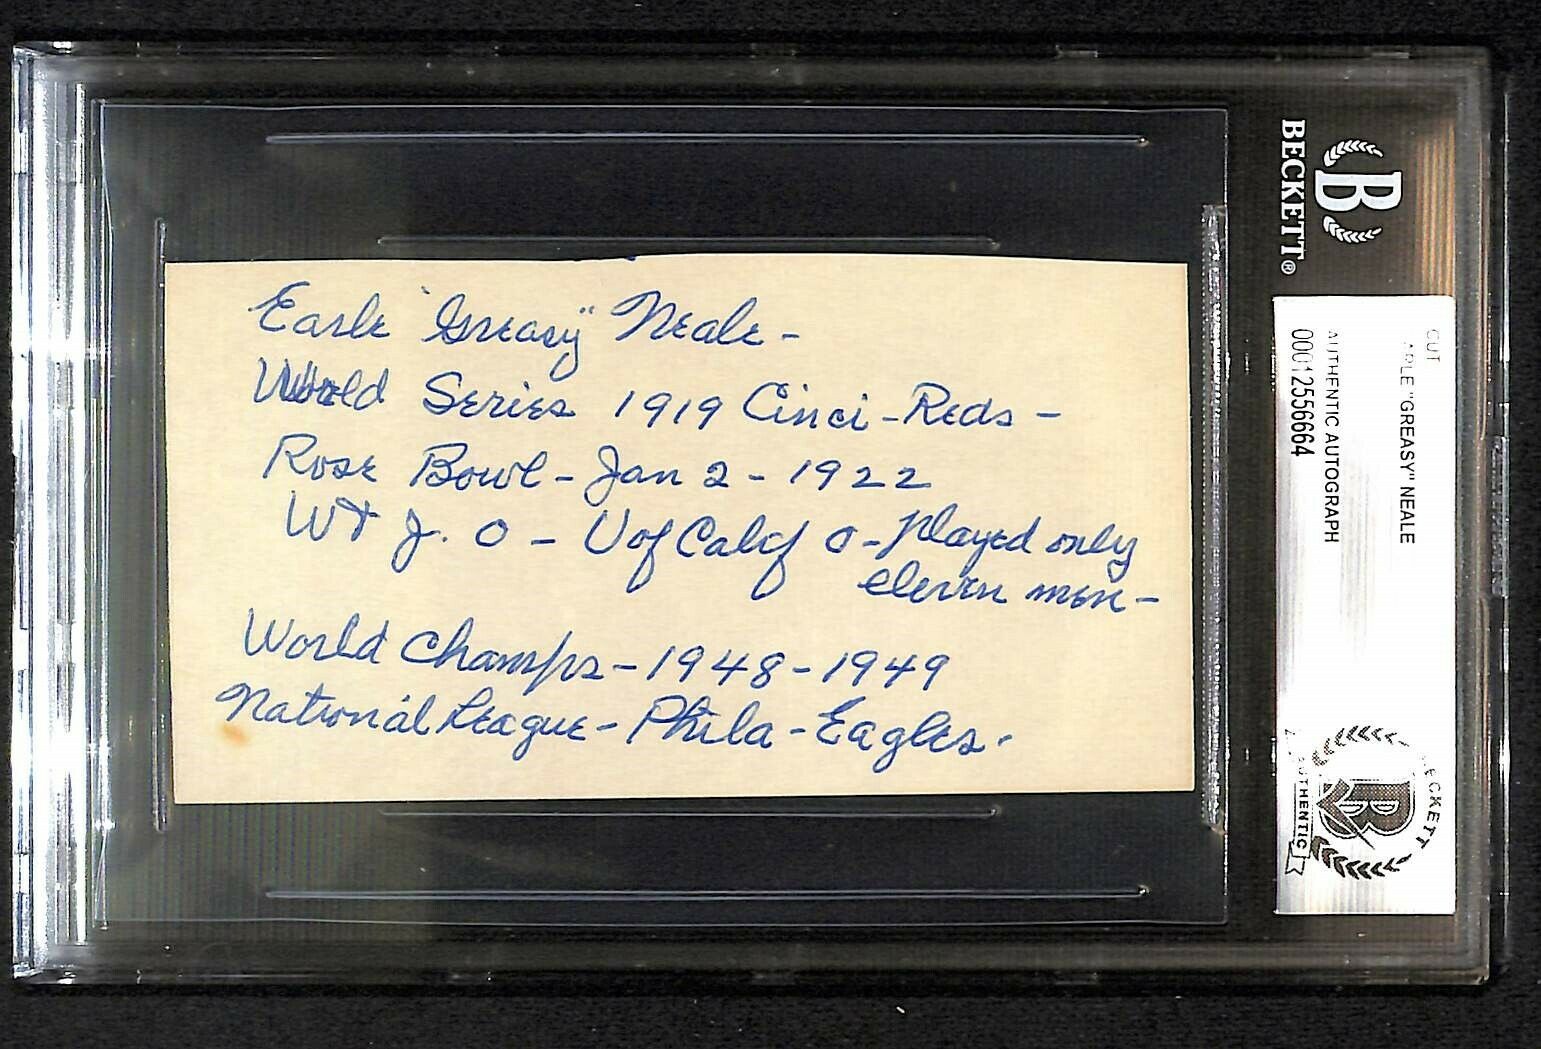 Earle "Greasy" Neale -
World Series 1919 Cinci - Reds -
Rose Bowl - Jan 2 - 1922
W & J. 0 - U of Calif 0 - Played only
eleven men -
World Champs - 1948 - 1949
National League - Phila - Eagles -
B
BECKETT®
CUT
ARLE "GREASY" NEALE
AUTHENTIC AUTOGRAPH
00012556664
B
ECKETT
AUTHENTIC